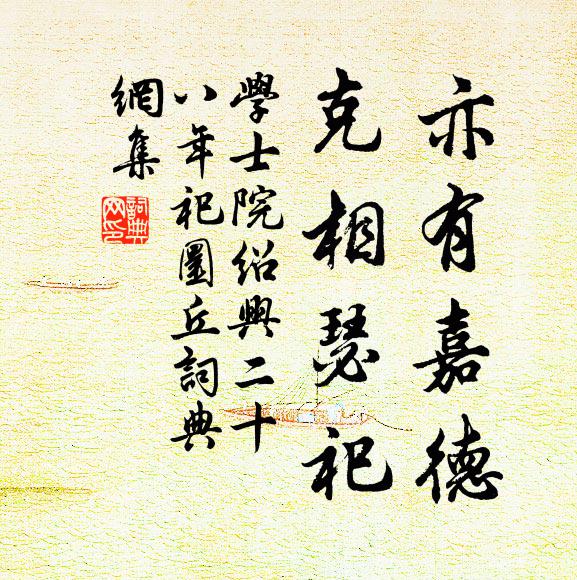 亦有嘉德
克相瑟祀
學士院紹興二十
八年祀圜丘詞典
網集
詞典
网印